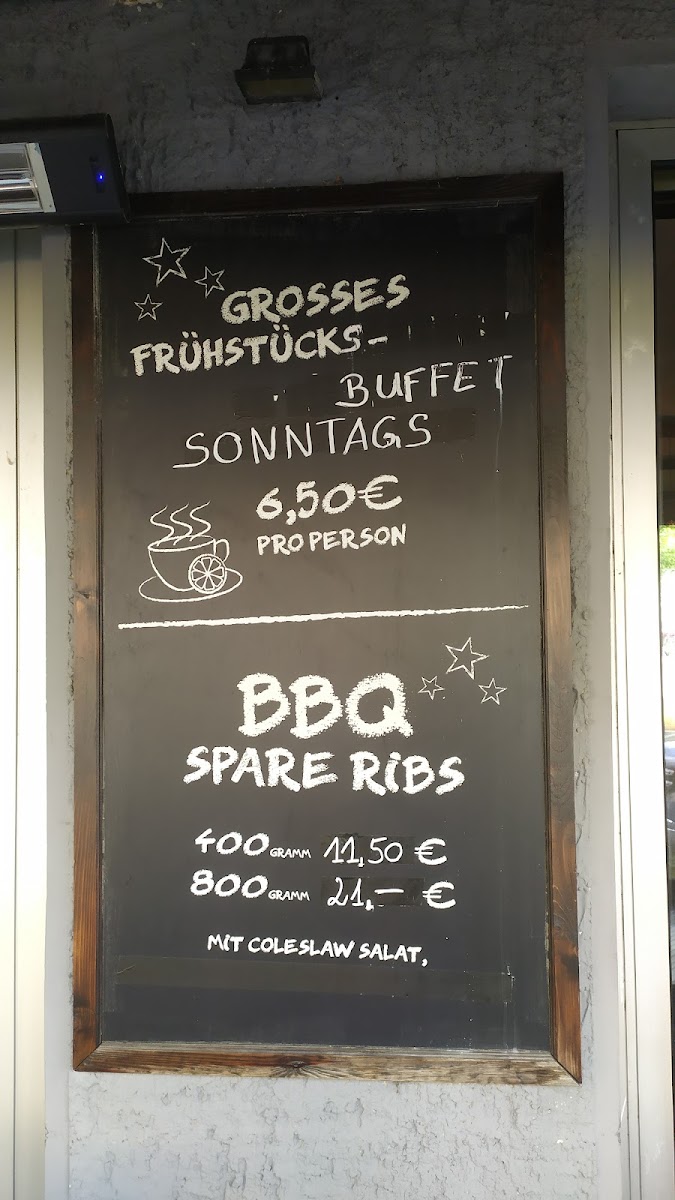 GROSSES
FRÜHSTÜCKS-
BUFFET
SONNTAGS
6,50€
PRO PERSON
BBQ
SPARE RIBS
400 GRAMM 11,50 €
800 GRAMM 21,— €
MIT COLESLAW SALAT,